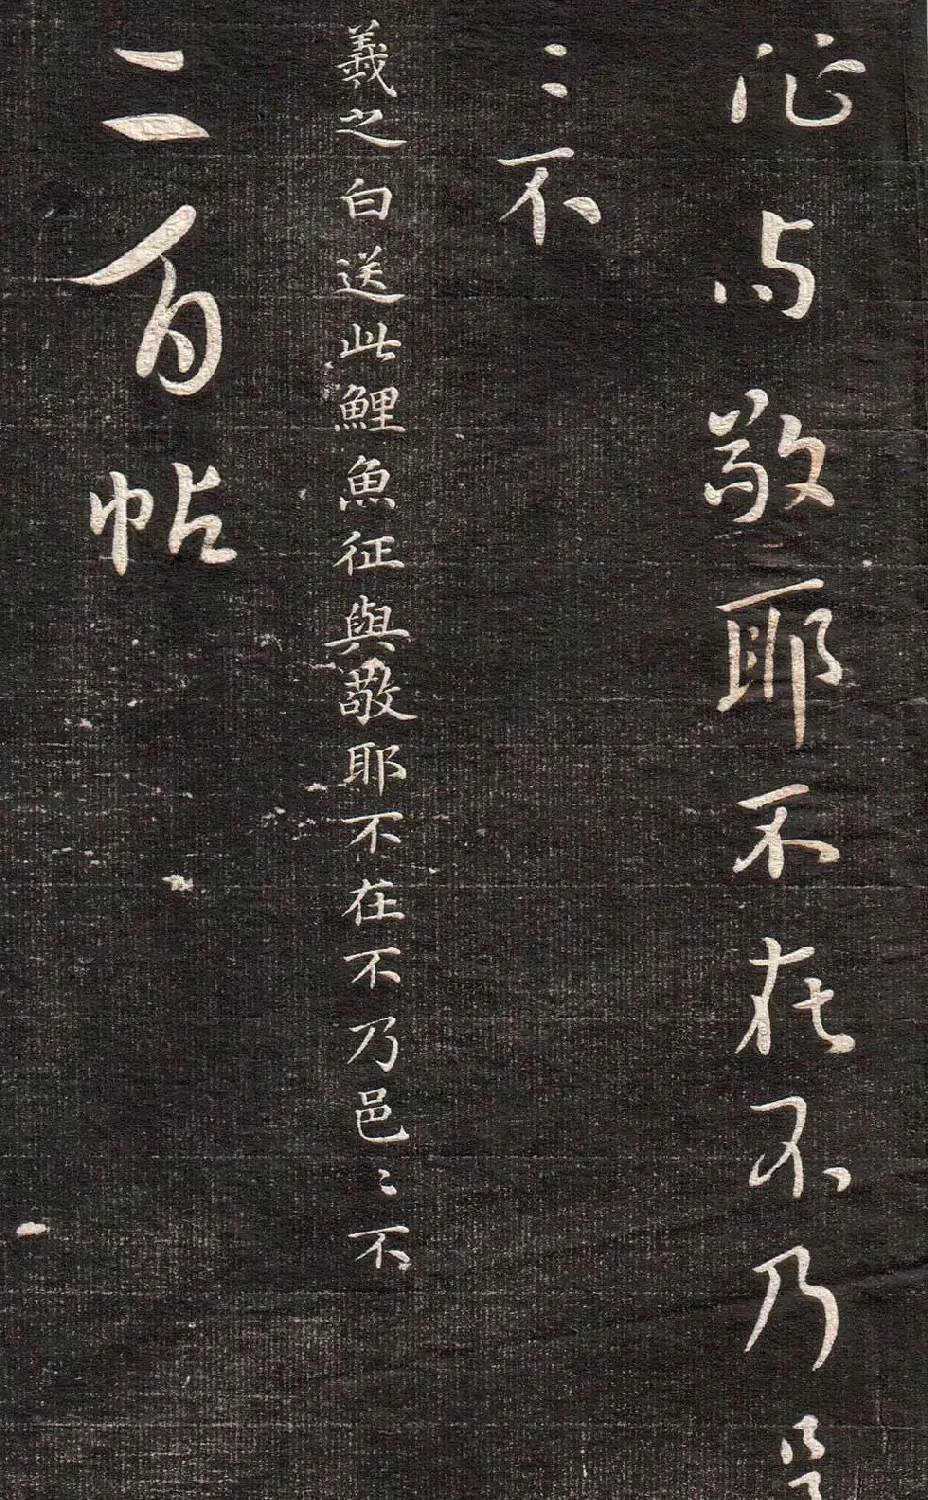 征与敬耶不在不乃邑
〻不
羲之白送此鯉魚征與敬耶不在不乃邑〻不
二百帖